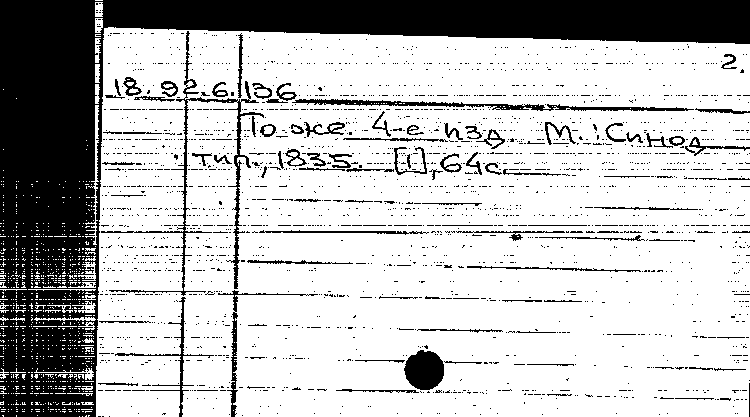 2.
18.92.6.136
То же. 4-е изд. М.: Синод
тип., 1835. [1], 64с.